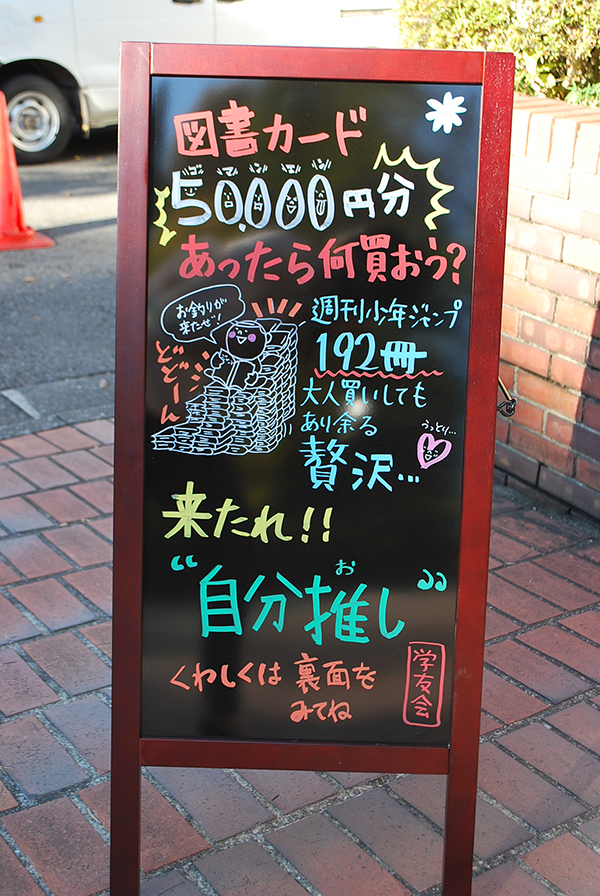 図書カード
50,000円分
あったら何買おう?
お釣りが
来たぜ!
どどーん
週刊少年ジャンプ
192冊
大人買いしても
あり余る
贅沢…
うっとり…
来たれ!!
"自分推し"
お
くわしくは裏面を
みてね
学友会